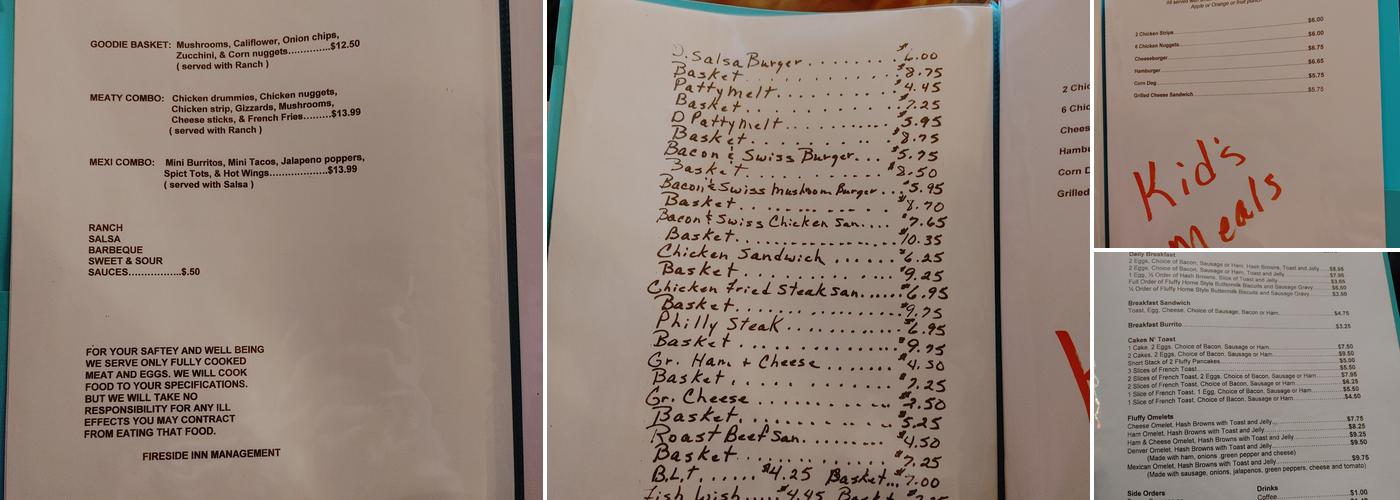 GOODIE BASKET: Mushrooms, Califlower, Onion chips,
Zucchini, & Corn nuggets.............$12.50
( served with Ranch )
MEATY COMBO: Chicken drummies, Chicken nuggets,
Chicken strip, Gizzards, Mushrooms,
Cheese sticks, & French Fries.........$13.99
( served with Ranch )
MEXI COMBO: Mini Burritos, Mini Tacos, Jalapeno poppers,
Spict Tots, & Hot Wings..................$13.99
( served with Salsa )
RANCH
SALSA
BARBEQUE
SWEET & SOUR
SAUCES...............$.50
FOR YOUR SAFTEY AND WELL BEING
WE SERVE ONLY FULLY COOKED
MEAT AND EGGS. WE WILL COOK
FOOD TO YOUR SPECIFICATIONS.
BUT WE WILL TAKE NO
RESPONSIBILITY FOR ANY ILL
EFFECTS YOU MAY CONTRACT
FROM EATING THAT FOOD.
FIRESIDE INN MANAGEMENT
D. Salsa Burger ........ $6.00
Basket ............ $8.75
Patty melt ........... $4.45
Basket ............ $7.25
D Patty melt .......... $5.95
Basket ............ $8.75
Bacon & Swiss Burger... $5.75
Basket ............ $8.50
Bacon & Swiss Mushroom Burger... $5.95
Basket ............ $8.70
Bacon & Swiss Chicken San.... $7.65
Basket ............ $10.35
Chicken Sandwich ...... $6.25
Basket ............ $9.25
Chicken Fried Steak San...... $6.95
Basket ............ $9.75
Philly Steak ........... $6.95
Basket ............ $9.75
Gr. Ham + Cheese ..... $4.50
Basket ............ $7.25
Gr. Cheese ............ $2.50
Basket ............ $5.25
Roast Beef San........ $4.50
Basket ............ $7.25
B.L.T. ...... $4.25 Basket... $7.00
$4.45
2 Chic
6 Chic
Chees
Hambu
Corn D
Grilled
Apple or Orange or fruit punch
2 Chicken Strips $6.00
6 Chicken Nuggets $6.00
Cheeseburger $6.75
Hamburger $6.65
Corn Dog $5.75
Grilled Cheese Sandwich $5.75
Kid's
Meals
Daily Breakfast
2 Eggs, Choice of Bacon, Sausage or Ham, Hash Browns, Toast and Jelly....$8.95
2 Eggs, Choice of Bacon, Sausage or Ham, Toast and Jelly....$7.95
1 Egg, ½ Order of Hash Browns, Slice of Toast and Jelly....$3.65
Full Order of Fluffy Home Style Buttermilk Biscuits and Sausage Gravy....$6.50
½ Order of Fluffy Home Style Buttermilk Biscuits and Sausage Gravy....$3.50
Breakfast Sandwich
Toast, Egg, Cheese, Choice of Sausage, Bacon or Ham....$4.75
Breakfast Burrito....$3.25
Cakes N' Toast
1 Cake, 2 Eggs, Choice of Bacon, Sausage or Ham....$7.50
2 Cakes, 2 Eggs, Choice of Bacon, Sausage or Ham....$9.50
Short Stack of 2 Fluffy Pancakes....$5.00
3 Slices of French Toast....$5.50
2 Slices of French Toast, 2 Eggs, Choice of Bacon, Sausage or Ham....$7.95
2 Slices of French Toast, Choice of Bacon, Sausage or Ham....$6.25
1 Slice of French Toast, 1 Egg, Choice of Bacon, Sausage or Ham....$5.50
1 Slice of French Toast, Choice of Bacon, Sausage or Ham....$4.50
Fluffy Omelets
Cheese Omelet, Hash Browns with Toast and Jelly....$7.75
Ham Omelet, Hash Browns with Toast and Jelly....$8.25
Ham & Cheese Omelet, Hash Browns with Toast and Jelly....$9.25
Denver Omelet, Hash Browns with Toast and Jelly....$9.50
(Made with ham, onions ,green pepper and cheese)
Mexican Omelet, Hash Browns with Toast and Jelly....$9.75
(Made with sausage, onions, jalapenos, green peppers, cheese and tomato)
Side Orders Drinks
Coffee....$1.00